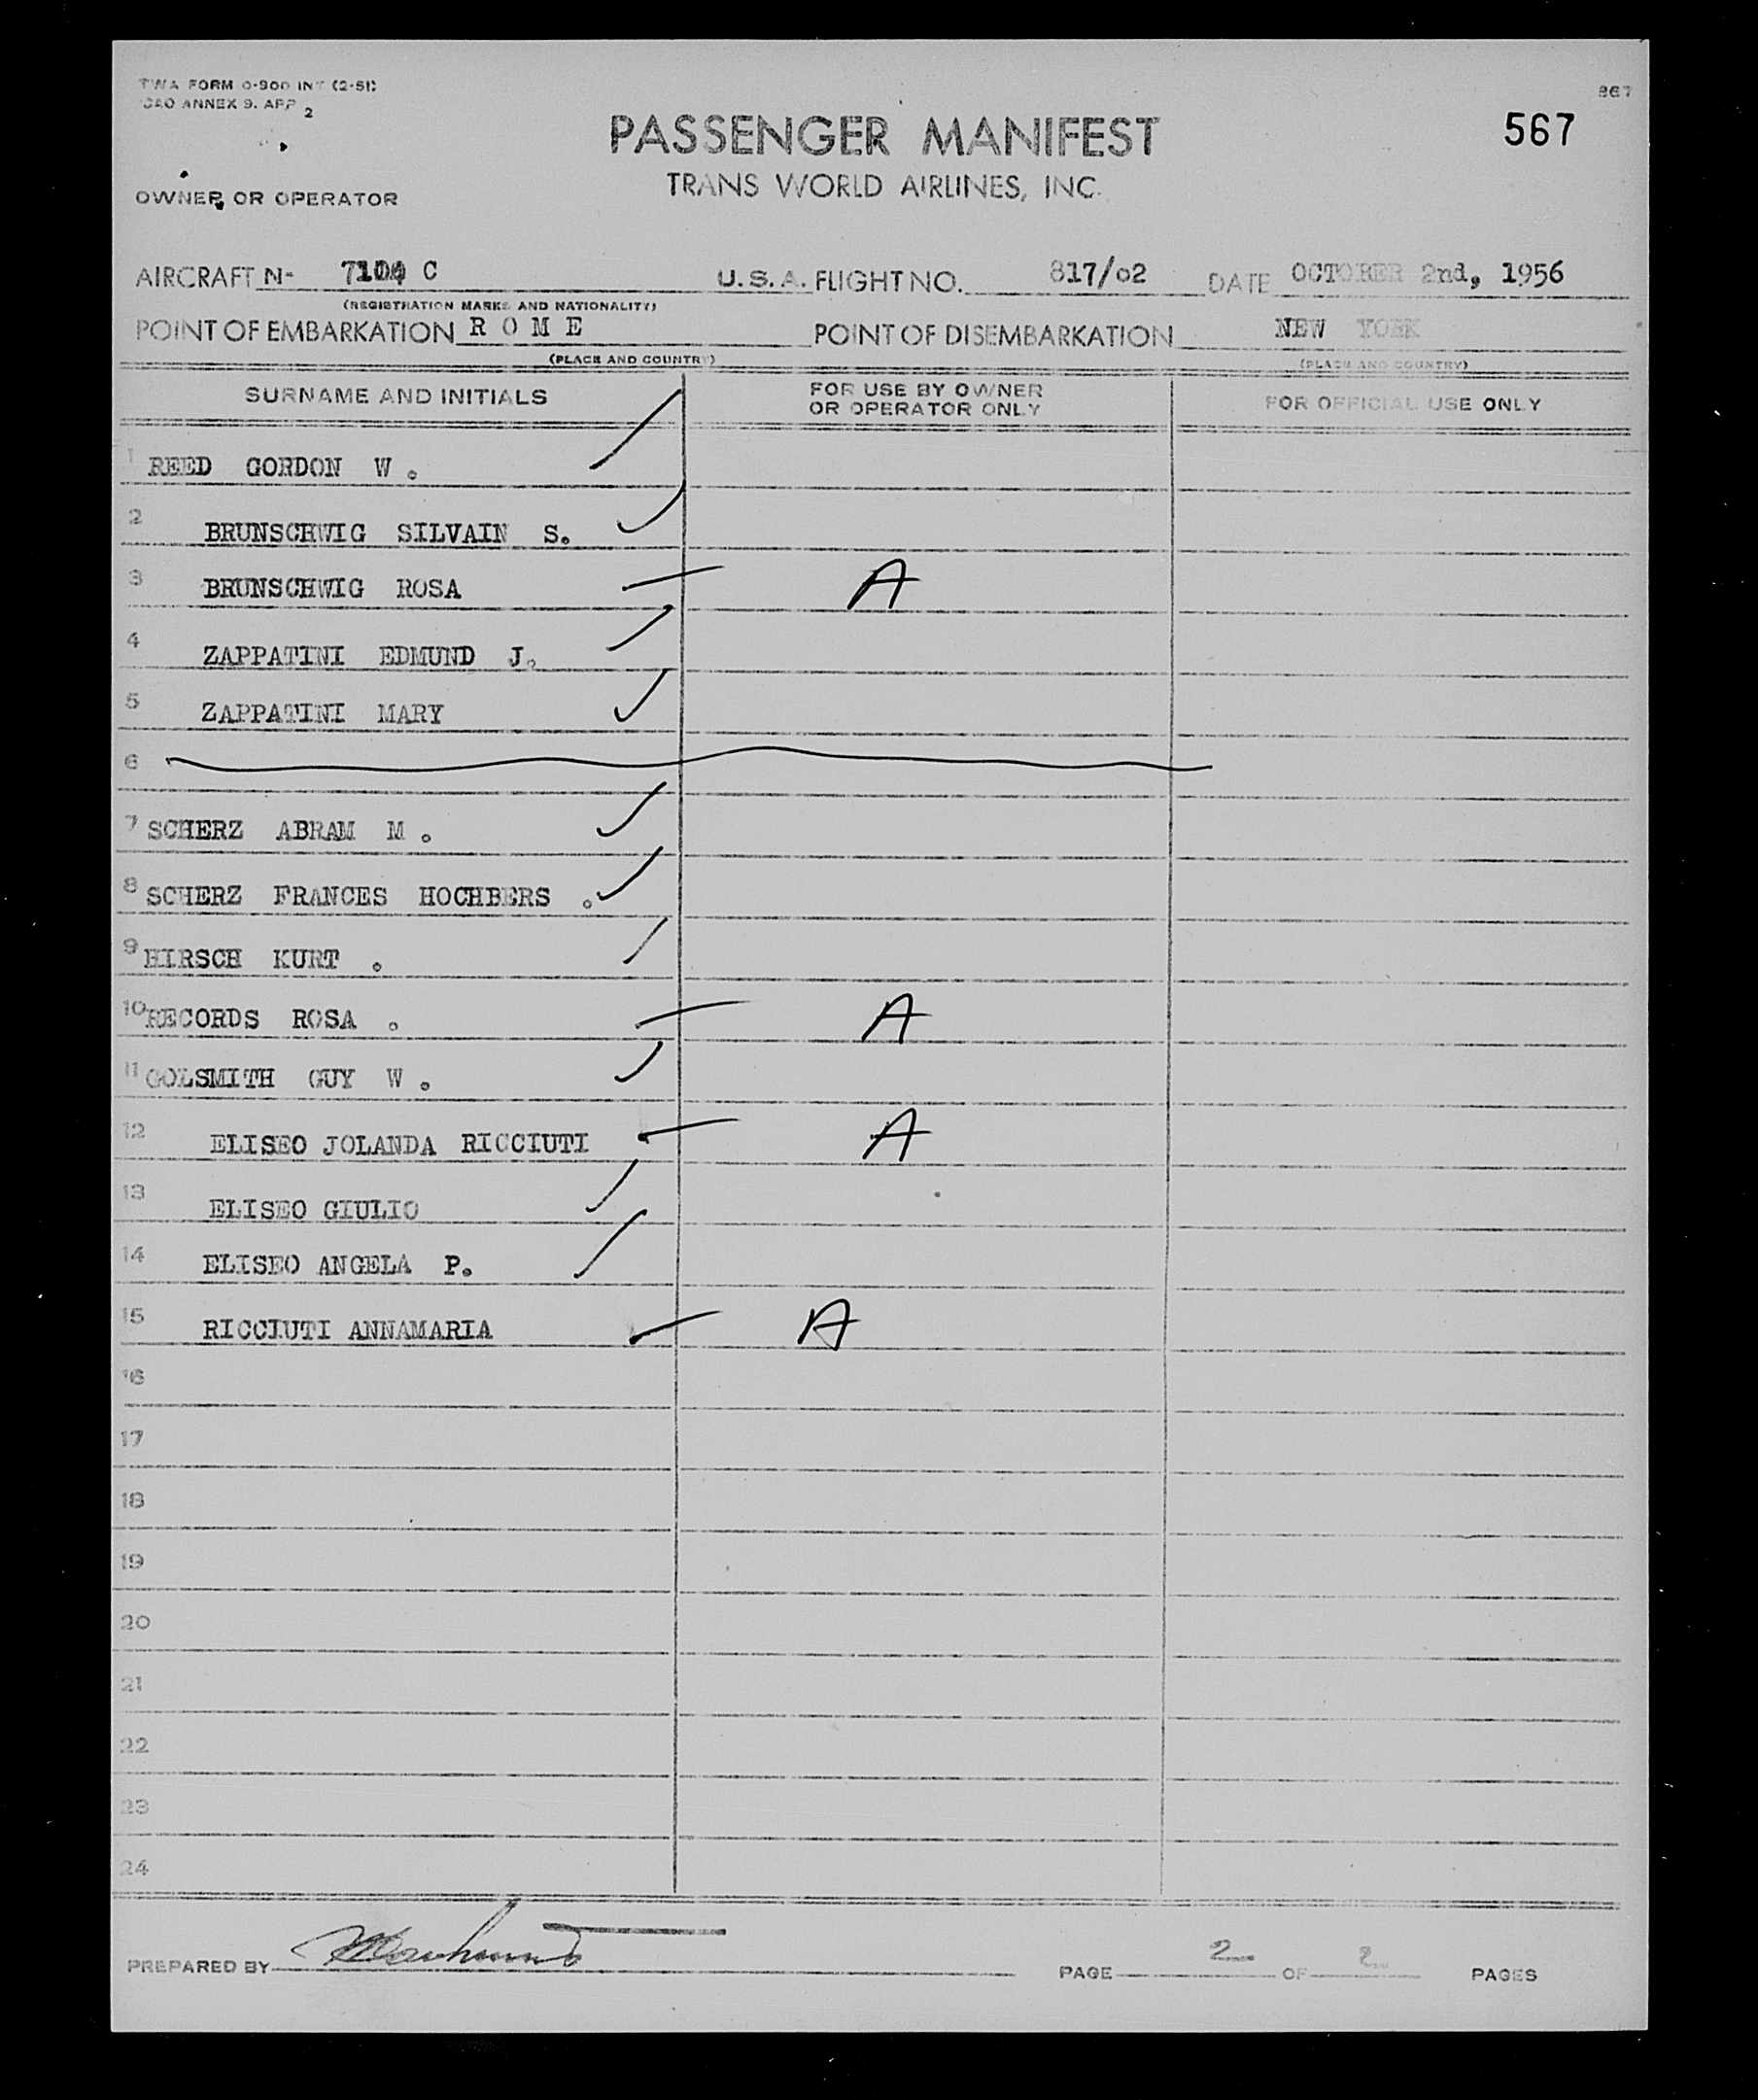 TWA FORM O-900 INT (2-51)
ICAO ANNEX 9. APP 2
867
567
PASSENGER MANIFEST
TRANS WORLD AIRLINES, INC.
OWNER OR OPERATOR
AIRCRAFT N- C U.S.A. FLIGHT NO. 817/02 DATE OCTOBER 2nd, 1956
(REGISTRATION MARKS AND NATIONALITY)
POINT OF EMBARKATION R O M E POINT OF DISEMBARKATION NEW YORK
(PLACE AND COUNTRY) (PLACE AND COUNTRY)
SURNAME AND INITIALS FOR USE BY OWNER OR OPERATOR ONLY FOR OFFICIAL USE ONLY
1 REED GORDON W.
2 BRUNSCHWIG SILVAIN S.
3 BRUNSCHWIG ROSA A
4 ZAPPATINI EDMUND J.
5 ZAPPATINI MARY
6
7 SCHERZ ABRAM M.
8 SCHERZ FRANCES HOCHBERS .
9 HIRSCH KURT .
10 RECORDS ROSA . A
11 GOLSMITH GUY W.
12 ELISEO JOLANDA RICCIUTI A
13 ELISEO GIULIO
14 ELISEO ANGELA P.
15 RICCIUTI ANNAMARIA A
16
17
18
19
20
21
22
23
24
PREPARED BY PAGE 2 OF 2 PAGES